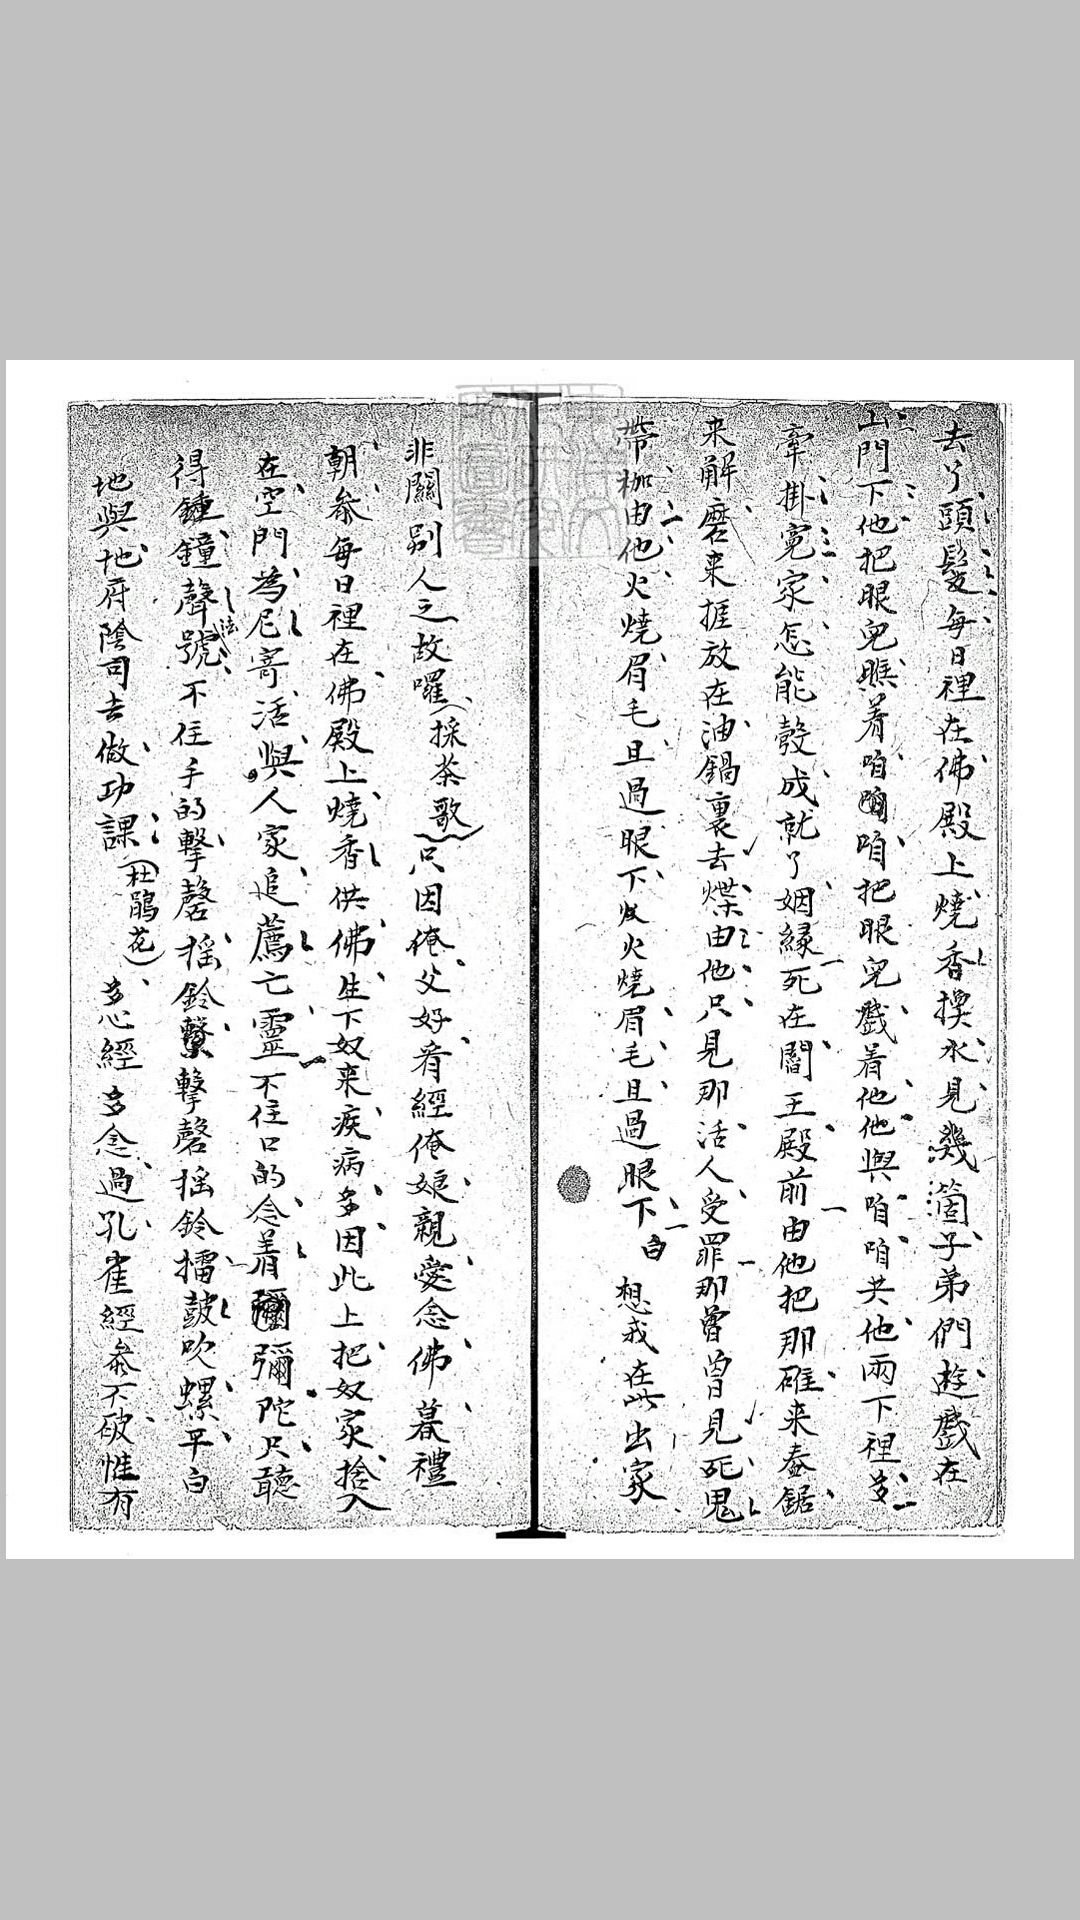 去丫頭髮每日裡在佛殿上燒香換水見幾箇子弟們遊戲在
山門下他把眼兒瞧着咱咱把眼兒戲着他他與咱咱共他兩下裡多
牽掛寃家怎能彀成就了姻緣死在閻王殿前由他把那碓来舂鋸
来解磨来捱放在油鍋裏去煠由他只見那活人受罪那曾見死鬼
帶枷由他火燒眉毛且過眼下火燒眉毛且過眼下白 想我在此出家
非關別人之故囉(採茶歌)只因俺父好看經俺娘親愛念佛暮禮
朝參每日裡在佛殿上燒香供佛生下奴来疾病多因此上把奴家捨入
在空門為尼寄活與人家追薦亡靈不住口的念着彌陀只聽
得鐘聲法號不住手的擊磬搖鈴擊磬搖鈴擂鼓吹螺平白
地與地府陰司去做功課(杜鵑花)多心經多念過孔雀經參不破惟有